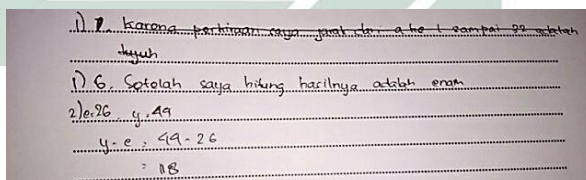 1) 7. Karena perkiraan saya jarak dari a ke t sampai 32 adalah
tujuh
1) 6. Setelah saya hitung hasilnya adalah enam
2) e=26 y=44
y-e = 44-26
= 18